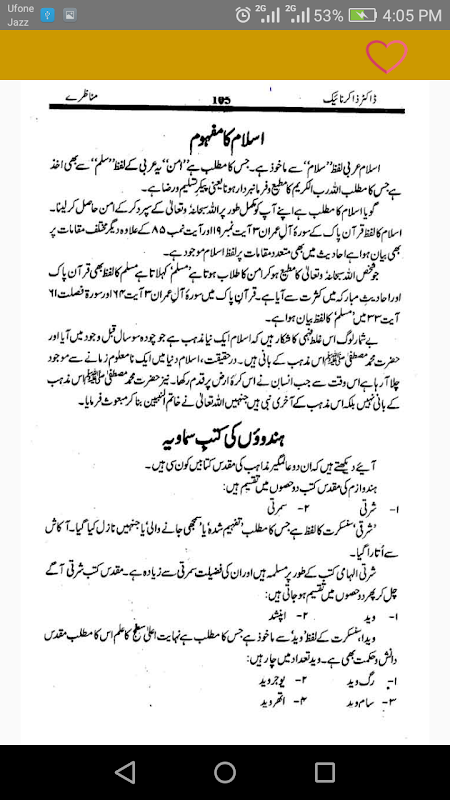 Ufone
Jazz
2G 2G 53% 4:05 PM
ڈاکٹر ذاکر نائیک 105 مناظرے
اسلام کا مفہوم
اسلام عربی لفظ ”سلام“ سے ماخوذ ہے۔ جس کا مطلب ہے ”امن“ یہ عربی کے لفظ ”سلم“ سے بھی اخذ
ہے جس کا مطلب اللہ رب الکریم کا مطیع و فرمانبردار ہونا یعنی پیکر تسلیم و رضا ہے۔
گویا اسلام کا مطلب ہے اپنے آپ کو مکمل طور پر اللہ سبحانہٗ وتعالیٰ کے سپرد کر کے امن حاصل کر لینا۔
اسلام کا لفظ قرآن پاک کے سورۂ آل عمران ۳ آیت نمبر ۱۹ اور آیت نمب ۸۵ کے علاوہ دیگر مختلف مقامات پر
بھی بیان ہوا ہے احادیث میں بھی متعدد مقامات پر لفظ اسلام موجود ہے۔
جو شخص اللہ سبحانہٗ وتعالیٰ کا مطیع ہو کر امن کا طلاب ہوتا ہے ’مسلم‘ کہلاتا ہے مسلم کا لفظ بھی قرآن پاک
اور احادیث مبارکہ میں کثرت سے آیا ہے۔ قرآن پاک میں سورۂ آل عمران ۳ آیت ۶۴ اور سورۃ فصلت ۶۱
آیت ۳۳ میں ’مسلم‘ کا لفظ بیان ہوا ہے۔
بے شمار لوگ اس غلط فہمی کا شکار ہیں کہ اسلام ایک نیا مذہب ہے جو چودہ سو سال قبل وجود میں آیا اور
حضرت محمد مصطفیٰ ﷺ اس مذہب کے بانی ہیں۔ درحقیقت، اسلام دنیا میں ایک نامعلوم زمانے سے موجود
چلا آ رہا ہے اس وقت سے جب انسان نے اس کرۂ ارض پر قدم رکھا۔ نیز حضرت محمد مصطفیٰ ﷺ اس مذہب
کے بانی نہیں بلکہ اس مذہب کے آخری نبی ہیں جنہیں اللہ تعالیٰ نے خاتم النبیین بنا کر مبعوث فرمایا۔
ہندوؤں کی کتب سماویہ
آیئے دیکھتے ہیں کہ ان دو عالمگیر مذاہب کی مقدس کتابیں کون سی ہیں۔
ہندوازم کی مقدس کتب دو حصوں میں تقسیم ہیں:
۱- شرتی ۲- سمرتی
’شرتی‘ سنسکرت کا لفظ ہے جس کا مطلب ’تفہیم شدہ‘ یا ’سمجھی جانے والی‘ یا جنہیں نازل کیا گیا۔ آکاش
سے اُتارا گیا۔
شرتی الہامی کتب کے طور پر مسلمہ ہیں اور ان کی فضیلت سمرتی سے زیادہ ہے۔ مقدس کتب شرتی آگے
چل کر پھر دو حصوں میں تقسیم ہو جاتی ہیں:
۱- وید ۲- اپنشد
وید! سنسکرت کے لفظ ’وید‘ سے ماخوذ ہے جس کا مطلب ہے نہایت اعلیٰ سطح کا علم اس کا مطلب مقدس
دانش و حکمت بھی ہے۔ وید تعداد میں چار ہیں:
۱- رگ وید ۲- یوجر وید
۳- سام وید ۴- اتھر وید